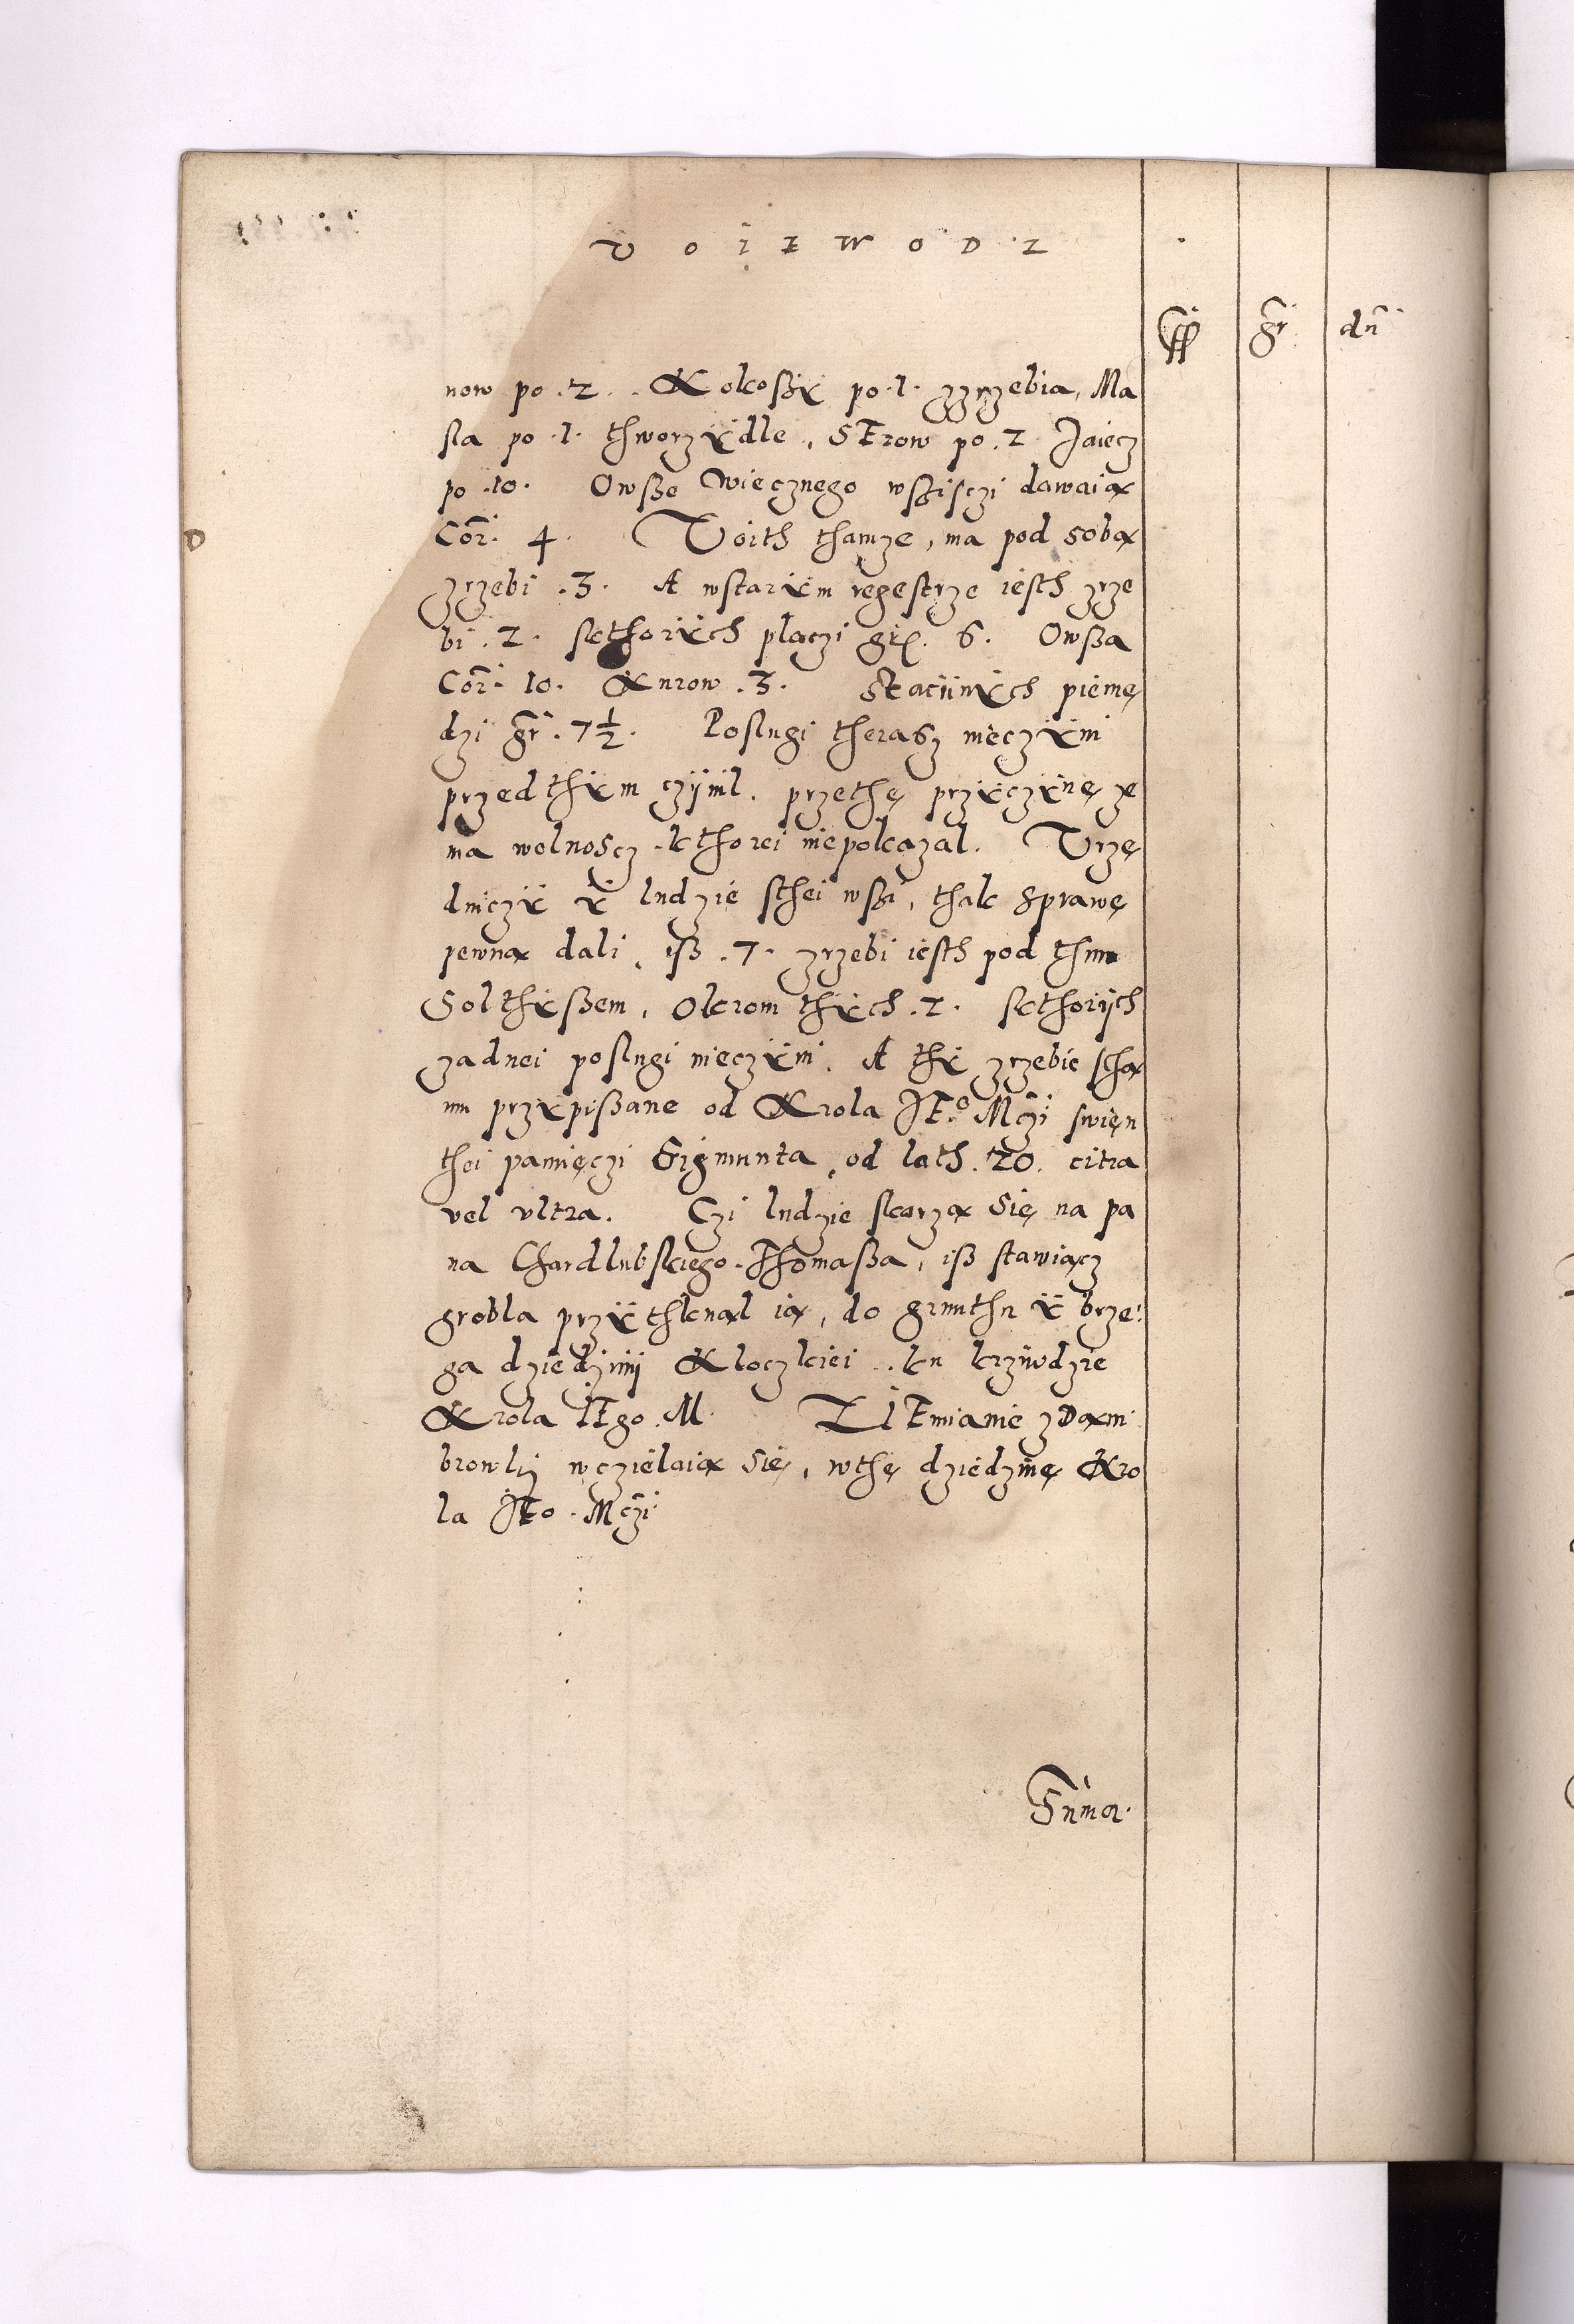 VOIEWODZ
ff gr dn
now po .2. Kokoßÿ po .1. zzrzebia, Ma
sla po .1. thworzÿdle, SErow po .2. Jaiecz
po .10. Owße wiecznego wßisczi dawaią
Cor. 4. Voith thamze, ma pod sobą
zrzebi .3. A wstarÿm regestrze iesth zrze
bi .2. skthorÿch placzi gr. 6. Owßa
Cor. 10. Knrow .3. Staciinÿch pienię
dzi gr. 7 1/2. Poslugi therasz nieczÿni
przedthÿm czÿnil. przethę przÿczÿnę ze
ma wolnoscz kthorei niepokazal. Vrzę
dniczÿ ÿ ludzie sthei wßi, thak sprawę
pewną dali, iß .7. zrzebi iesth pod thim
Solthÿßem, Okrom thÿch .2. skthorÿch
zadnei poslugi nieczÿni. A thÿ zrzebie są
mu przÿpißane od Krola JEo Mczi swięn
thei pamięczi Sigmunta, od lath .20. citra
vel vltra. Czi ludzie skarzą Się na pa
na Chardlubskiego Thomaßa, iß stawiącz
grobla przÿthknął ią, do grunthu ÿ brze:
ga dziedzinÿ Kloczkiei ku krziwdzie
Krola IEgo M. ZIEmianie zDąm
browkÿ wczielaią Się, wthę dziedzinę Kro
la JEo Mczi
Suma.